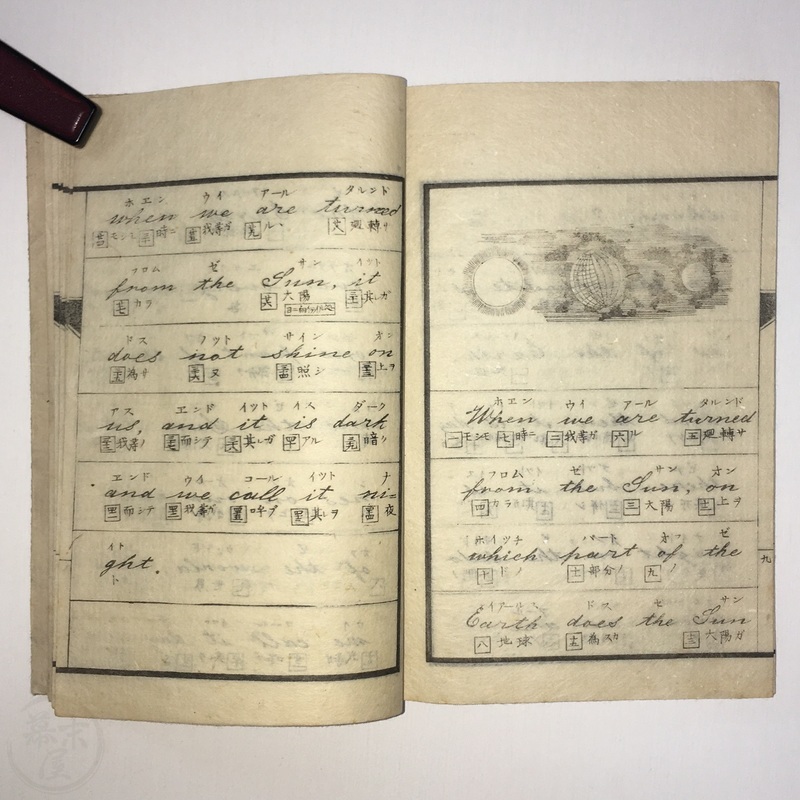 ホエン ウイ アール タルンド
when we are turned
モシモ 時ニ 我等ガ ル、 廻轉サ
フロム ゼ サン イット
from the Sun, it
カラ 大陽 其レガ
ドス ノット サイン オン
does not shine on
為サ 又 照シ 上ヲ
アス エンド イット イス ダーク
us, and it is dark
我等ノ 而シテ 其レガ アル 暗ク
エンド ウイ コール イット ナ
and we call it ni=
而シテ 我等ガ 呼ブ 其レヲ 夜
イト
ght.
ト
ホエン ウイ アール タルンド
When we are turned
一 モシモ 七 時ニ 二 我等ガ 六 ル 五 廻轉サ
フロム ゼ サン オン
from the Sun, on
四 カラ 三 大陽 上ヲ
ホイッチ パート オフ ゼ
which part of the
十 ドノ 十一 部分ノ 九 ノ
ドス ゼ サン
Earth does the Sun
八 地球 為スカ 大陽ガ
九